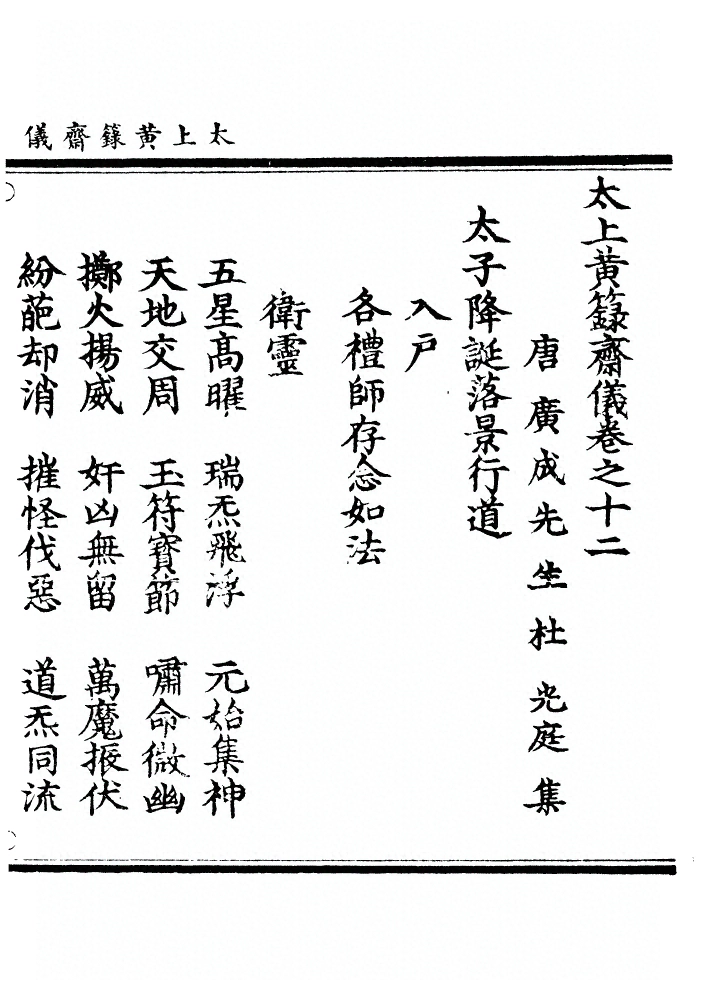 太上黃籙齋儀
太上黃籙齋儀卷之十二
唐廣成先生杜光庭集
太子降誕落景行道
入戶
各禮師存念如法
衛靈
五星高曜 瑞炁飛浮 元始集神
天地交周 玉符寶節 嘯命微幽
擲火揚威 奸凶無留 萬魔振伏
紛葩却消 摧怪伐惡 道炁同流